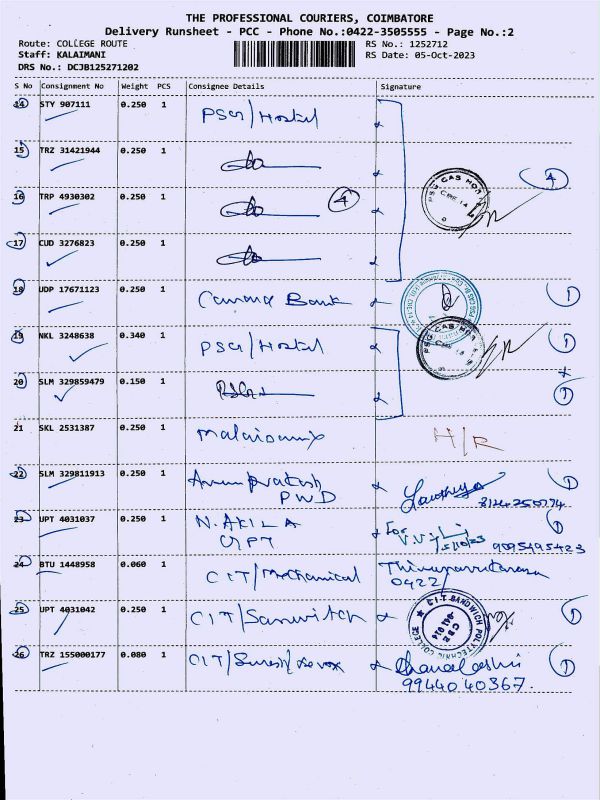 THE PROFESSIONAL COURIERS, COIMBATORE
Delivery Runsheet - PCC - Phone No.:0422-3505555 - Page No.:2
Route: COLLEGE ROUTE RS No.: 1252712
Staff: KALAIMANI RS Date: 05-Oct-2023
DRS No.: DCJB125271202
S No Consignment No Weight PCS Consignee Details Signature
14 STY 907111 0.250 1 PSG/Hostel
15 TRZ 31421944 0.250 1
16 TRP 4930302 0.250 1 4 4
17 CUD 3276823 0.250 1
PSG CAS HO
18 UDP 17671123 0.250 1 Canara Bank 1
19 NKL 3248638 0.340 1 PSG/Hostel 1
PSG CAS HO
20 SLM 329859479 0.150 1 1
21 SKL 2531387 0.250 1 H/R
22 SLM 329811913 0.250 1 Arunprakash 1
PWD
23 UPT 4031037 0.250 1 N. AKILA For 1
GPT 9095495423
24 BTU 1448958 0.060 1 CIT/Mechanical
0422
25 UPT 4031042 0.250 1 CIT/Sanwitch 1
CIT SANDWICH POLYTECHNIC COLLEGE
641 014
CBE
26 TRZ 155000177 0.080 1 CIT/Suresh 1
99440 40367.